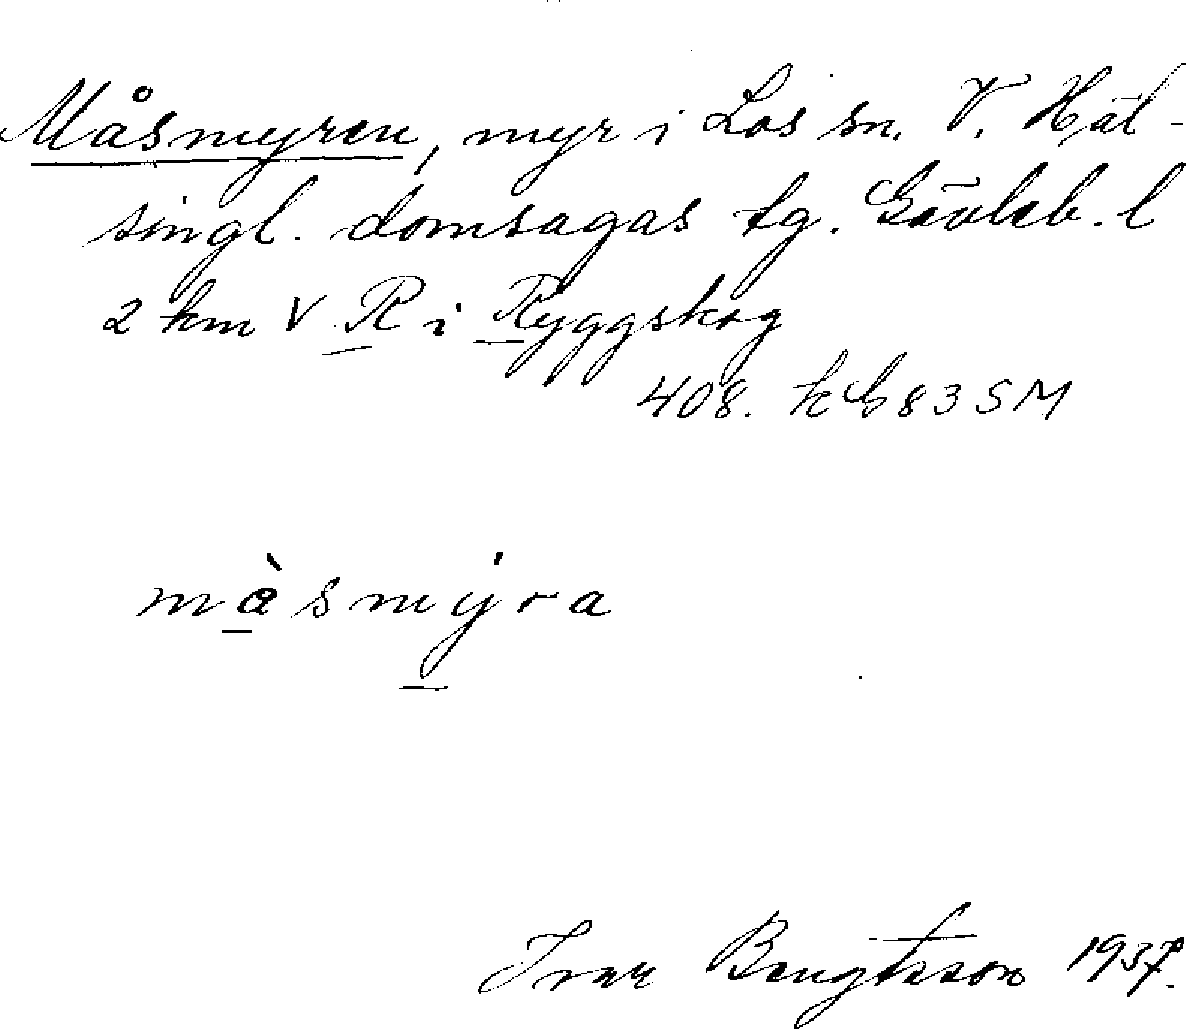 Måsmyren, myr i Los sn. V. Häl-
singl. domsagas tg. Gävleb. l
2 km V R i Ryggskog
408. kb 83 SM
måsmyra
Ivar Bengtsson 1937.